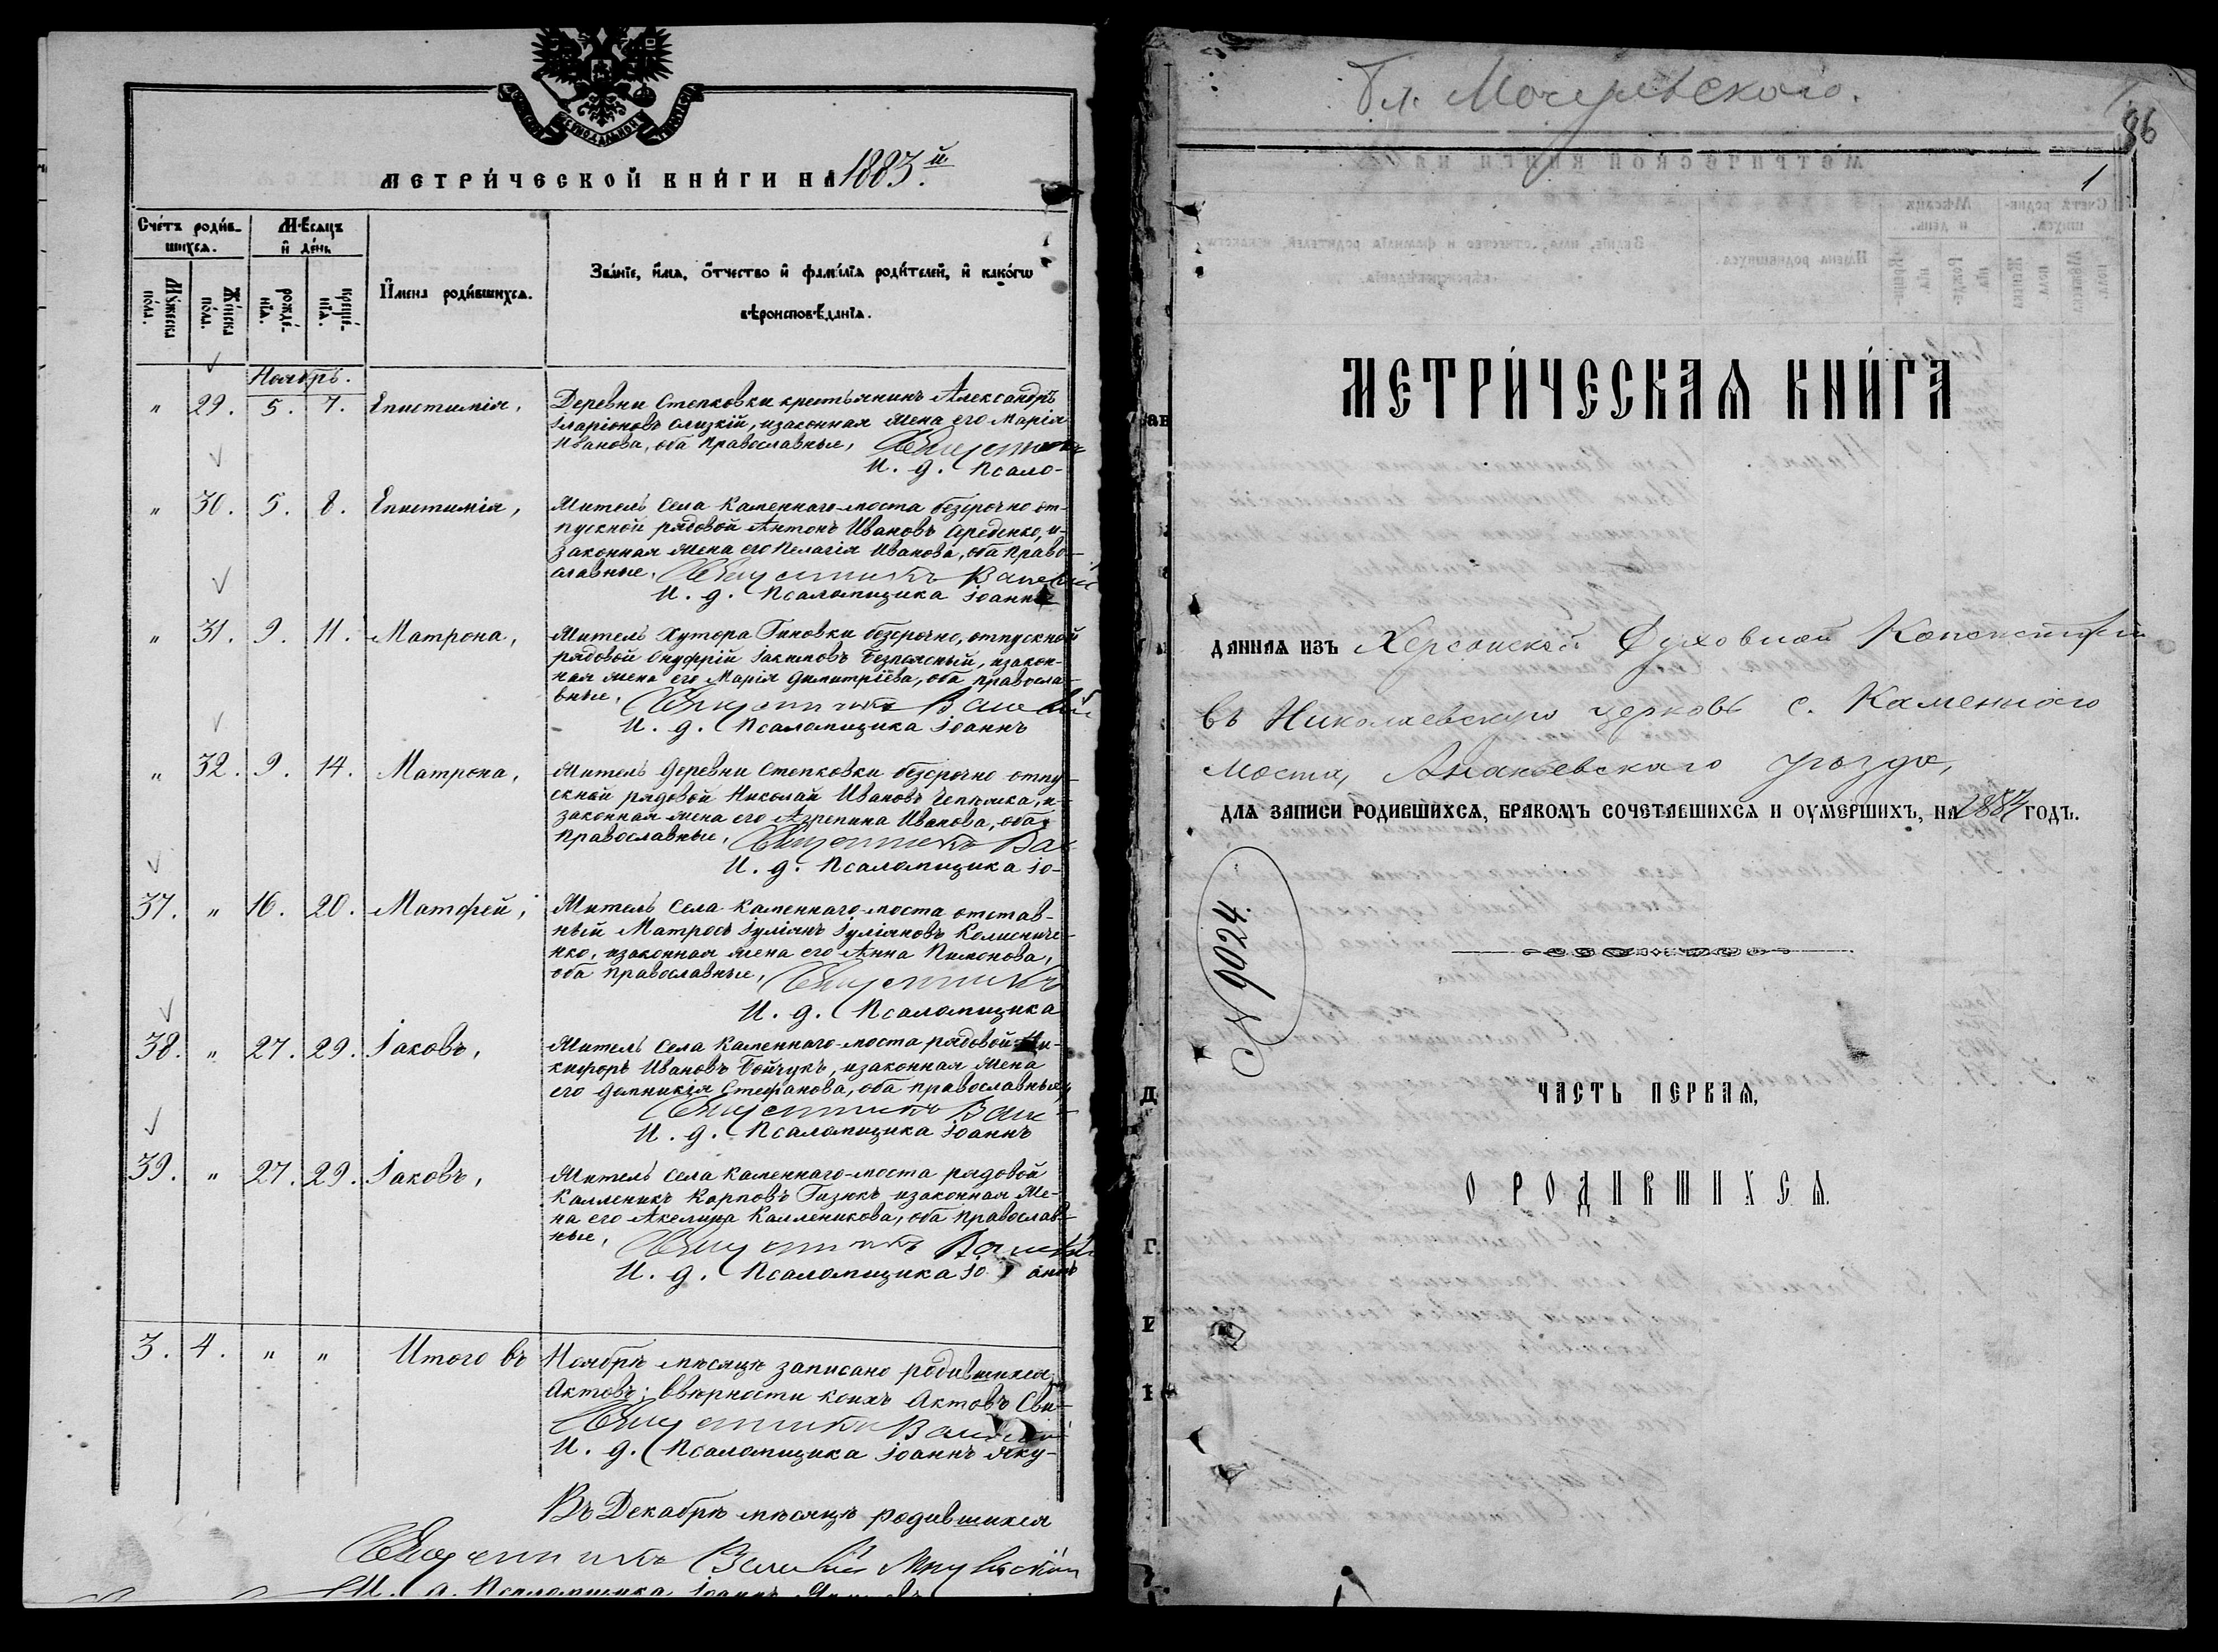 МЕТРИ́ЧЕСКОЙ КНИ́ГИ НА 1883.й
Сче́тъ роди́в-
шихсѧ.
Мѣ́сѧцъ
и҆ де́нь
Мꙋ́жеска
по́ла.
Же́нска
по́ла.
рожде́-
нїѧ.
креще́-
нїѧ.
И҆мена роди́вшихсѧ.
Зва́нїе, и҆́мѧ, ѻ҆́тчество и҆ фами́лїѧ роди́телей, и҆ како́гѡ
вѣроисповѣ́данїѧ.
Ноябрь.
" 29. 5. 7. Епистимія, Деревни Степковки крестьянинъ Александръ
Іларіоновъ Слизкій, изаконная жена его Марія
Иванова, оба православные, Священникъ
И. д. Псало-
" 30. 5. 8. Епистимія, Житель Села Каменнаго-моста безсрочно от-
пускной рядовой Антонъ Ивановъ Середенко, и-
законная жена его Пелагія Иванова, оба право-
славные. Священникъ Василій
И. д. Псаломщика Іоаннъ
" 31. 9. 11. Матрона, Житель Хутора Гиковки безсрочно, отпускной
рядовой Онуфрій Іакимовъ Безпясный, изакон-
ная жена его Марія Димитріева, оба правосла-
вные, Священникъ Василій
И. д. Псаломщика Іоаннъ
" 32. 9. 14. Матрона, Житель деревни Степковки безсрочно отпу-
скной рядовой Николай Ивановъ Чепижка, и-
законная жена его Агрепина Иванова, оба
православные, Священникъ Ва-
И. д. Псаломщика Іо-
37. " 16. 20. Матфей, Житель Села Каменнаго-моста отстав-
ный Матросъ Іуліанъ Іуліановъ Колисниче-
нко, изаконная жена его Анна Пимонова,
оба православные, Священникъ
И. д. Псаломщика
38. " 27. 29. Іаковъ, Житель Села Каменнаго-моста рядовой Ни-
кифоръ Ивановъ Бойчукъ, изаконная жена
его Домникія Стефанова, оба православные,
Священникъ Васи-
И. д. Псаломщика Іоаннъ
39. " 27. 29. Іаковъ, Житель Села Каменнаго-моста рядовой
Каленикъ Карповъ Гизюкъ изаконная же-
на его Акелина Каленикова, оба православ-
ные, Священникъ Василій
И. д. Псаломщика Іоаннъ
3. 4. " " Итого въ Ноябрѣ мѣсяцѣ записано родившихся
Актовъ; ввѣрности коихъ Актовъ Сви-
Священникъ Василій
И. д. Псаломщика Іоаннъ Яку-
Въ Декабрѣ мѣсяцѣ родившихся
Священникъ Василій
И. д. Псаломщика Іоаннъ
Бл.
86
1
МЕТРИ́ЧЕСКАѦ КНИ́ГА
ДАННАѦ ИЗЪ Херсонской Духовной Консисторіи
въ Николаевскую церковь с. Каменнаго
Моста, Ананьевскаго уѣзда,
ДЛѦ ЗАПИСИ РОДИВШИХСѦ, БРАКОМЪ СОЧЕТАВШИХСѦ И ОУМЕРШИХЪ, НА 1884 ГОДЪ.
№ 9024.
ЧАСТЬ ПЕРВАѦ,
О РОДИВШИХСѦ.